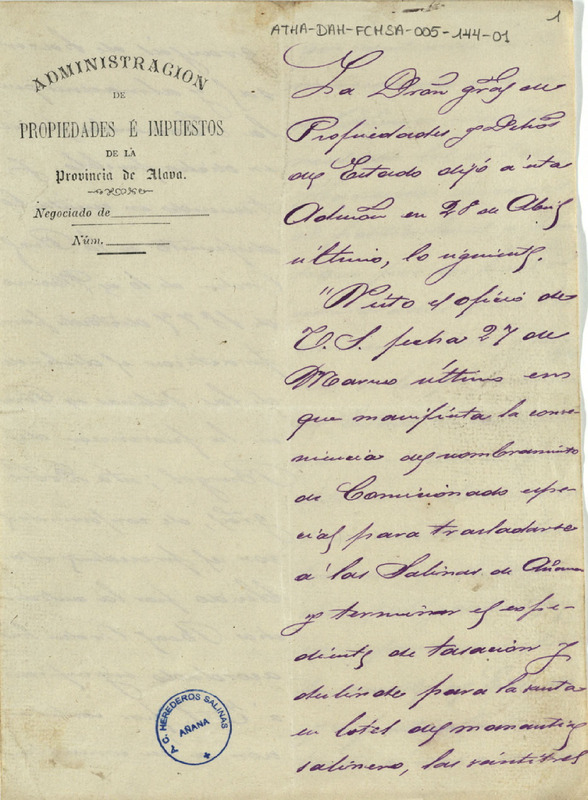 1
ATHA-DAH-FCMSA-005-144-01
ADMINISTRACION
DE
PROPIEDADES É IMPUESTOS
DE LA
Provincia de Alava.
Negociado de
Núm.
La Dron gral de
Propiedades y Dchos
del Estado dijó á esta
Admon en 28 de Abril
último, lo siguiente.
"Visto el oficio de
V. S. fecha 27 de
Marzo último en
que manifiesta la conve-
niencia del nombramiento
de Comicionado espe-
cial para trasladarse
á las Salinas de Añana
y terminar el espe-
diente de tasación y
deslinde para la venta
en lotes del manantial
salinero, las veintitres
HEREDEROS SALINAS
AÑANA